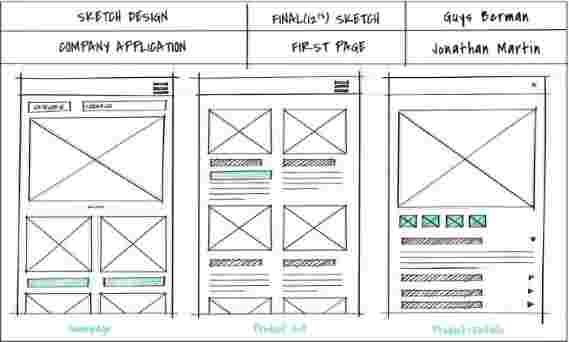 SKETCH DESIGN
FINAL(12th) SKETCH
Guys Berman
COMPANY APPLICATION
FIRST PAGE
Jonathan Martin
Homepage
Product
Product Details